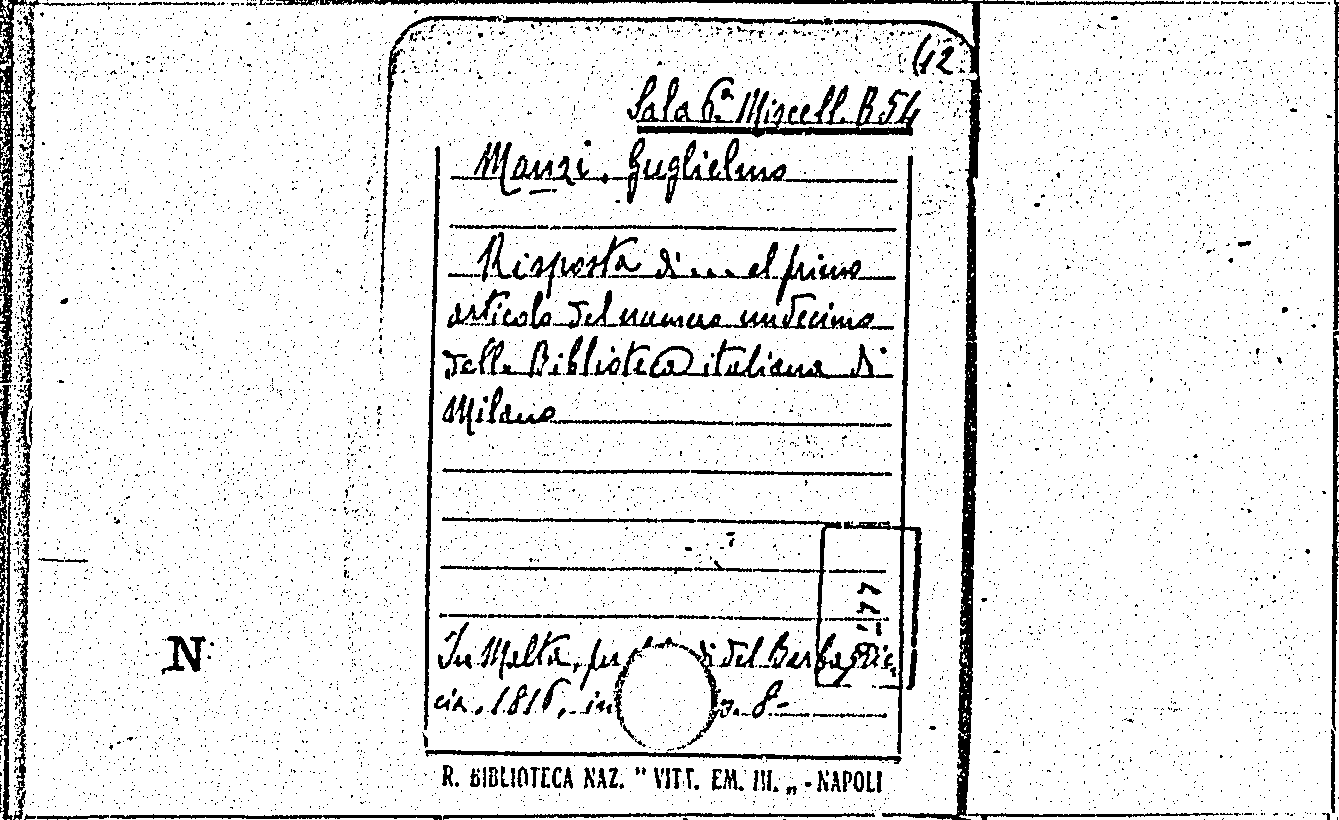 (12
Sala 6.ª Miscell. B 54
Manzi. Guglielmo
Risposta di ... al primo
articolo del numero undecimo
della Biblioteca italiana di
Milano
In Malta, di del
cia. 1816. in p. 8-
R. BIBLIOTECA NAZ. " VITT. EM. III. „ - NAPOLI
N